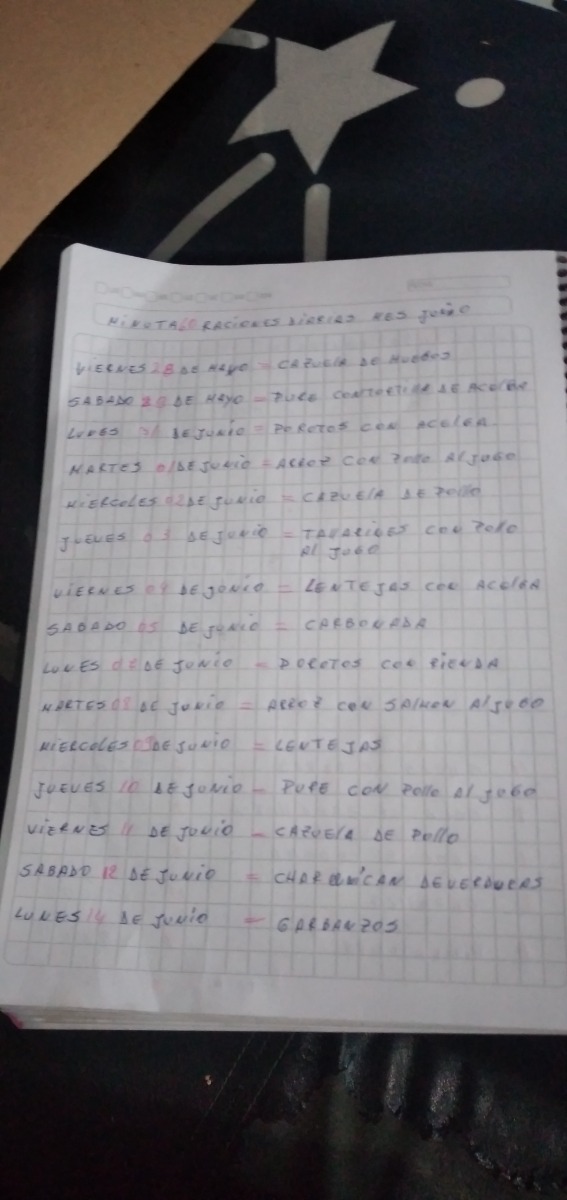 MINUTA 60 RACIONES DIARIAS MES JUNIO
VIERNES 28 DE MAYO = CAZUELA DE HUESOS
SABADO 29 DE MAYO = PURE CON TORTILLA DE ACELGA
LUNES 31 DE JUNIO = POROTOS CON ACELGA
MARTES 01 DE JUNIO = ARROZ CON POLLO AL JUGO
MIERCOLES 02 DE JUNIO = CAZUELA DE POLLO
JUEVES 03 DE JUNIO = TAYARINES CON POLLO
AL JUGO
VIERNES 04 DE JUNIO = LENTEJAS CON ACELGA
SABADO 05 DE JUNIO = CARBONADA
LUNES 07 DE JUNIO = POROTOS CON RIENDA
MARTES 08 DE JUNIO = ARROZ CON SALMON AL JUGO
MIERCOLES 09 DE JUNIO = LENTEJAS
JUEVES 10 DE JUNIO - PURE CON POLLO AL JUGO
VIERNES 11 DE JUNIO - CAZUELA DE POLLO
SABADO 12 DE JUNIO = CHARQUICAN DE VERDURAS
LUNES 14 DE JUNIO = GARBANZOS